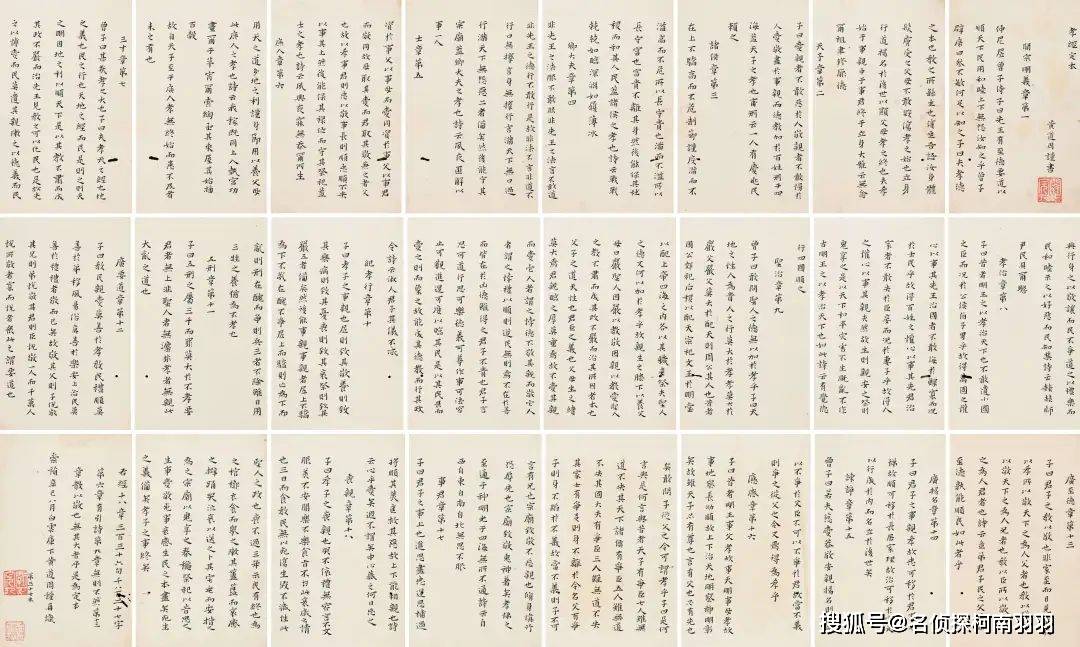 孝經定本
黃道周謹書
開宗明義章第一
仲尼居曾子侍子曰先王有至德要道以
順天下民用和睦上下無怨汝知之乎曾子
辟席曰參不敏何足以知之子曰夫孝德
之本也教之所繇生也復坐吾語汝身體
髮膚受之父母不敢毀傷孝之始也立身
行道揚名於後世以顯父母孝之終也夫孝
始于事親中于事君終于立身大雅云無念
爾祖聿脩厥德
天子章第二
子曰愛親者不敢惡於人敬親者不敢慢於
人愛敬盡於事親而德教加於百姓刑于四
海蓋天子之孝也甫刑云一人有慶兆民
賴之
諸侯章第三
在上不驕高而不危制節謹度滿而不
溢高而不危所以長守貴也滿而不溢所以
長守富也富貴不離其身然後能保其社
稷而和其人民蓋諸侯之孝也詩云戰戰
兢兢如臨深淵如履薄冰
卿大夫章第四
非先王之法服不敢服非先王之法言不敢道
非先王之德行不敢行是故非法不言非道不
行口無擇言身無擇行言滿天下無口過
行滿天下無怨惡三者備矣然後能守其
宗廟蓋卿大夫之孝也詩云夙夜匪懈以
事一人
士章第五
資於事父以事母而愛同資於事父以事君
而敬同故母取其愛而君取其敬兼之者父
也故以孝事君則忠以敬事長則順忠順不失
以事其上然後能保其祿位而守其祭祀蓋
士之孝也詩云夙興夜寐無忝爾所生
庶人章第六
用天之道分地之利謹身節用以養父母
此庶人之孝也詩云
百穀
故自天子至于庶人孝無終始而患不及者
未之有也
三才章第七
曾子曰甚哉孝之大也子曰夫孝天之經也地
之義也民之行也天地之經而民是則之則天
之明因地之利以順天下是以其教不肅而成
其政不嚴而治先王見教之可以化民也是故先
之以博愛而民莫遺其親陳之以德義而民
興行先之以敬讓而民不爭道之以禮樂而
民和睦示之以好惡而民知禁詩云赫赫師
尹民具爾瞻
孝治章第八
子曰昔者明王之以孝治天下也不敢遺小國
之臣而況於公侯伯子男乎故得萬國之懽
心以事其先王治國者不敢侮於鰥寡而況
於士民乎故得百姓之懽心以事其先君治
家者不敢失於臣妾而況於妻子乎故得人
之懽心以事其親夫然故生則親安之祭則
鬼享之是以天下和平災害不生禍亂不作
故明王之以孝治天下也如此詩云有覺德
行四國順之
聖治章第九
曾子曰敢問聖人之德無以加於孝乎子曰天
地之性人為貴人之行莫大於孝孝莫大於
嚴父嚴父莫大於配天則周公其人也昔者
周公郊祀后稷以配天宗祀文王於明堂
以配上帝四海之內各以其職來祭夫聖人
之德又何以加於孝乎故親生之膝下以養父
母日嚴聖人因嚴以教敬因親以教愛聖人
之教不肅而成其政不嚴而治其所因者本也
父子之道天性也君臣之義也父母生之續
莫大焉君親臨之厚莫重焉故不愛其親
而愛他人者謂之悖德不敬其親而敬他人
者謂之悖禮以順則逆民無則焉不在於善
而皆在於凶德雖得之君子不貴也君子言
思可道行思可樂德義可尊作事可法容
止可觀進退可度以臨其民是以其民畏而
愛之則而象之故能成其德教而行其政
令詩云淑人君子其儀不忒
紀孝行章第十
子曰孝子之事親也居則致其敬養則致
其樂病則致其憂喪則致其哀祭則致其
嚴五者備矣然後能事親事親者居上不驕
為下不亂在醜不爭居上而驕則亡為下而
亂則刑在醜而爭則兵三者不除雖日用
三牲之養猶為不孝也
五刑章第十一
子曰五刑之屬三千而罪莫大於不孝要
君者無上非聖人者無法非孝者無親此
大亂之道也
廣要道章第十二
子曰教民親愛莫善於孝教民禮順莫
善於悌移風易俗莫善於樂安上治民莫
善於禮禮者敬而已矣故敬其父則子悅敬
其兄則弟悅敬其君則臣悅敬一人而千萬人
悅所敬者寡而悅者眾此之謂要道也
子曰君子之教以孝也非家至而日見之也
教以孝所以敬天下之為人父者也教以悌所
以敬天下之為人兄者也教以臣所以敬天下
之為人君者也詩云豈弟君子民之父母非
至德孰能順民如此其大者乎
廣揚名章第十四
子曰君子之事親孝故忠可移於君事兄
悌故順可移於長居家理故治可移於官是
以行成於內而名立於後世矣
諫諍章第十五
曾子曰若夫慈愛恭敬安親揚名則聞命
矣敢問子從父之令可謂孝乎子曰是何
言與是何言與昔者天子有爭臣七人雖無
道不失其天下諸侯有爭臣五人雖無道
不失其國大夫有爭臣三人雖無道不失
其家士有爭友則身不離於令名父有爭
子則身不陷於不義故當不義則子不可
以不爭於父臣不可以不爭於君故當不義
則爭之從父之令又焉得為孝乎
應感章第十六
子曰昔者明王事父孝故事天明事母孝故
事地察長幼順故上下治天地明察神明彰
矣故雖天子必有尊也言有父也必有先也
言有兄也宗廟致敬不忘親也脩身慎行
恐辱先也宗廟致敬鬼神著矣孝悌之
至通于神明光于四海無所不通詩云自
西自東自南自北無思不服
事君章第十七
子曰君子之事上也進思盡忠退思補過
將順其美匡救其惡故上下能相親也詩
云心乎愛矣遐不謂矣中心藏之何日忘之
喪親章第十八
子曰孝子之喪親也哭不偯禮無容言不文
服美不安聞樂不樂食旨不甘此哀戚之情
也三日而食教民無以死傷生毀不滅性此
聖人之政也喪不過三年示民有終也為
之棺椁衣衾而舉之陳其簠簋而哀戚
之擗踊哭泣哀以送之卜其宅兆而安措之
為之宗廟以鬼享之春秋祭祀以時思之
生事愛敬死事哀戚生民之本盡矣死生
之義備矣孝子之事終矣
右經十八章
搜狐号@名侦探柯南羽羽